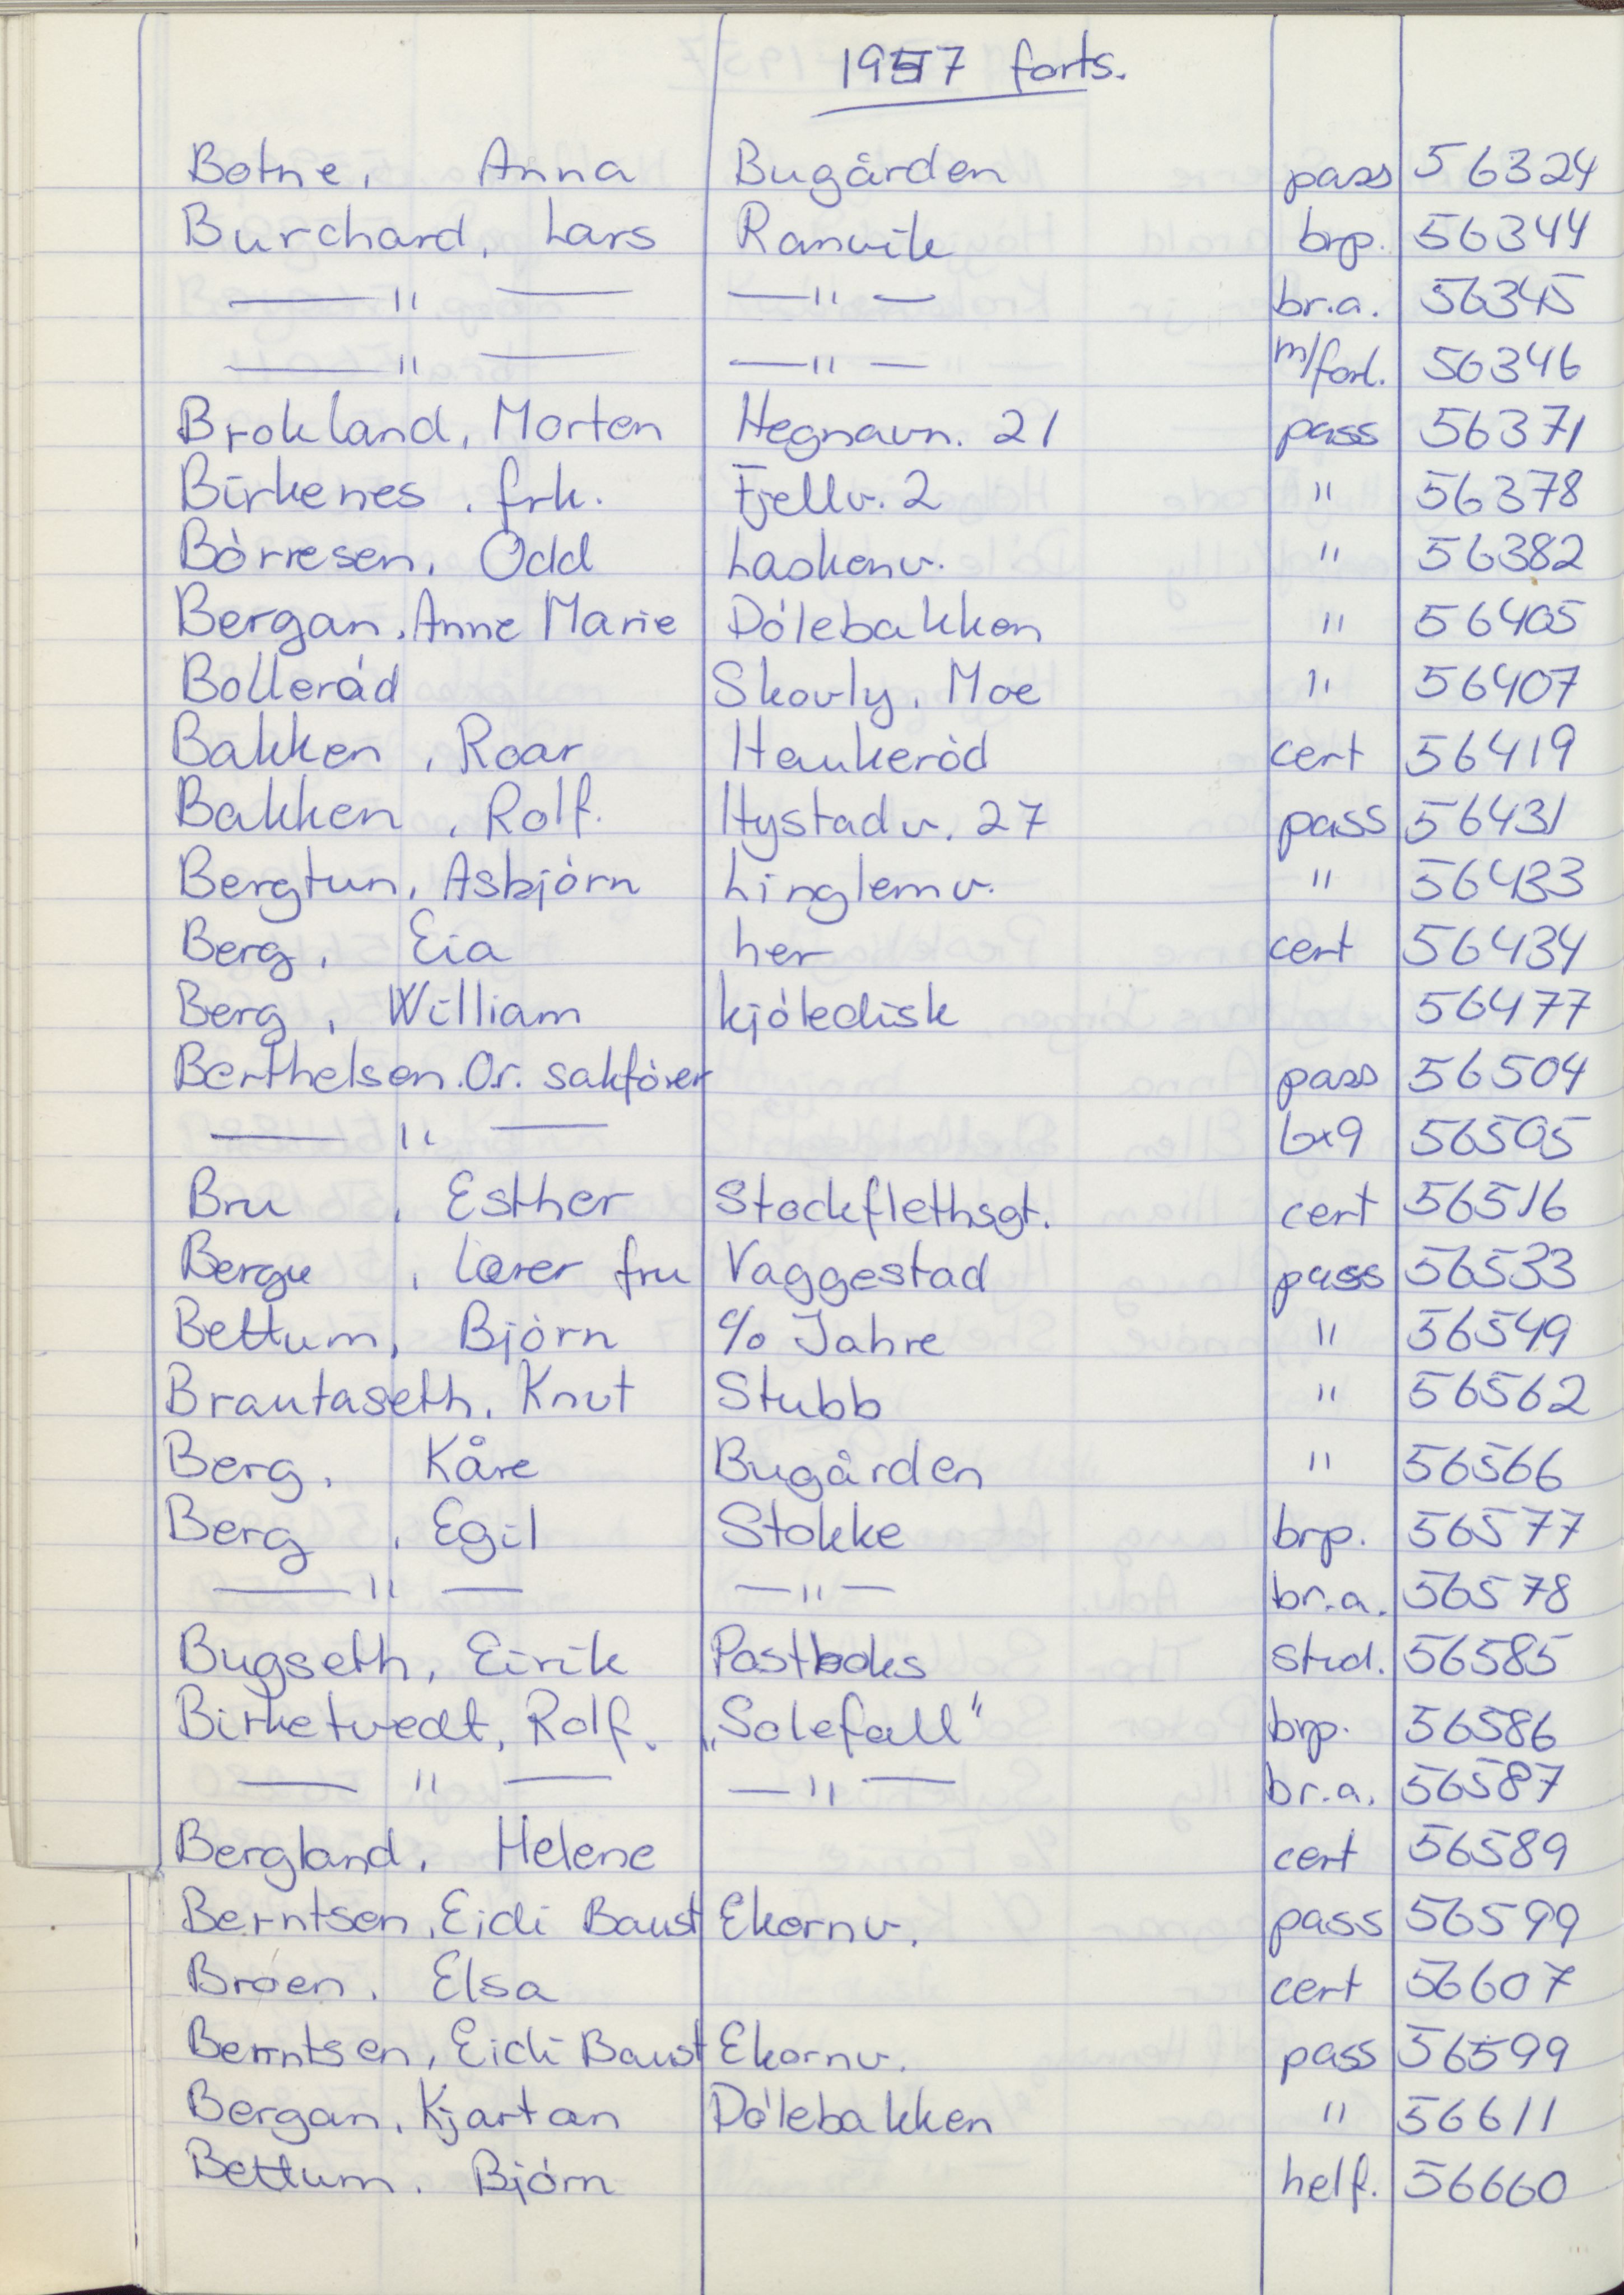 1957 forts.
Botne, Anna Bugården pass 56324
Burchard, Lars Ranvik brp. 56344
— " — — " — br.a. 56345
— " — — " — m/forl. 56346
Brokland, Morten Hegnavn. 21 pass 56371
Birkenes, frk. Fjellv. 2 " 56378
Börresen, Odd Laskenv. " 56382
Bergan, Anne Marie Dölebakken " 56405
Bolleråd Skovly, Moe " 56407
Bakken, Roar Haukeröd cert 56419
Bakken, Rolf. Hystadv. 27 pass 56431
Bergtun, Asbjörn Linglemv. " 56433
Berg, Eia her cert 56434
Berg, William kjöledisk 56477
Berthelsen. O.r. sakförer pass 56504
— " — 6x9 56505
Bru, Esther Stockflethsgt. cert 56516
Berge, lærer fru Vaggestad pass 56533
Bettum, Björn c/o Jahre " 56549
Brautaseth, Knut Stubb " 56562
Berg, Kåre Bugården " 56566
Berg, Egil Stokke brp. 56577
— " — — " — br.a. 56578
Bugseth, Eirik Postboks stud. 56585
Birketvedt, Rolf. „Solefall" brp. 56586
— " — — " — br.a. 56587
Bergland, Helene cert 56589
Berntsen, Eidi Baust Ekornv. pass 56599
Bröen, Elsa cert 56607
Berntsen, Eidi Baust Ekornv. pass 56599
Bergan, Kjartan Dölebakken " 56611
Bettum, Björn helf. 56660